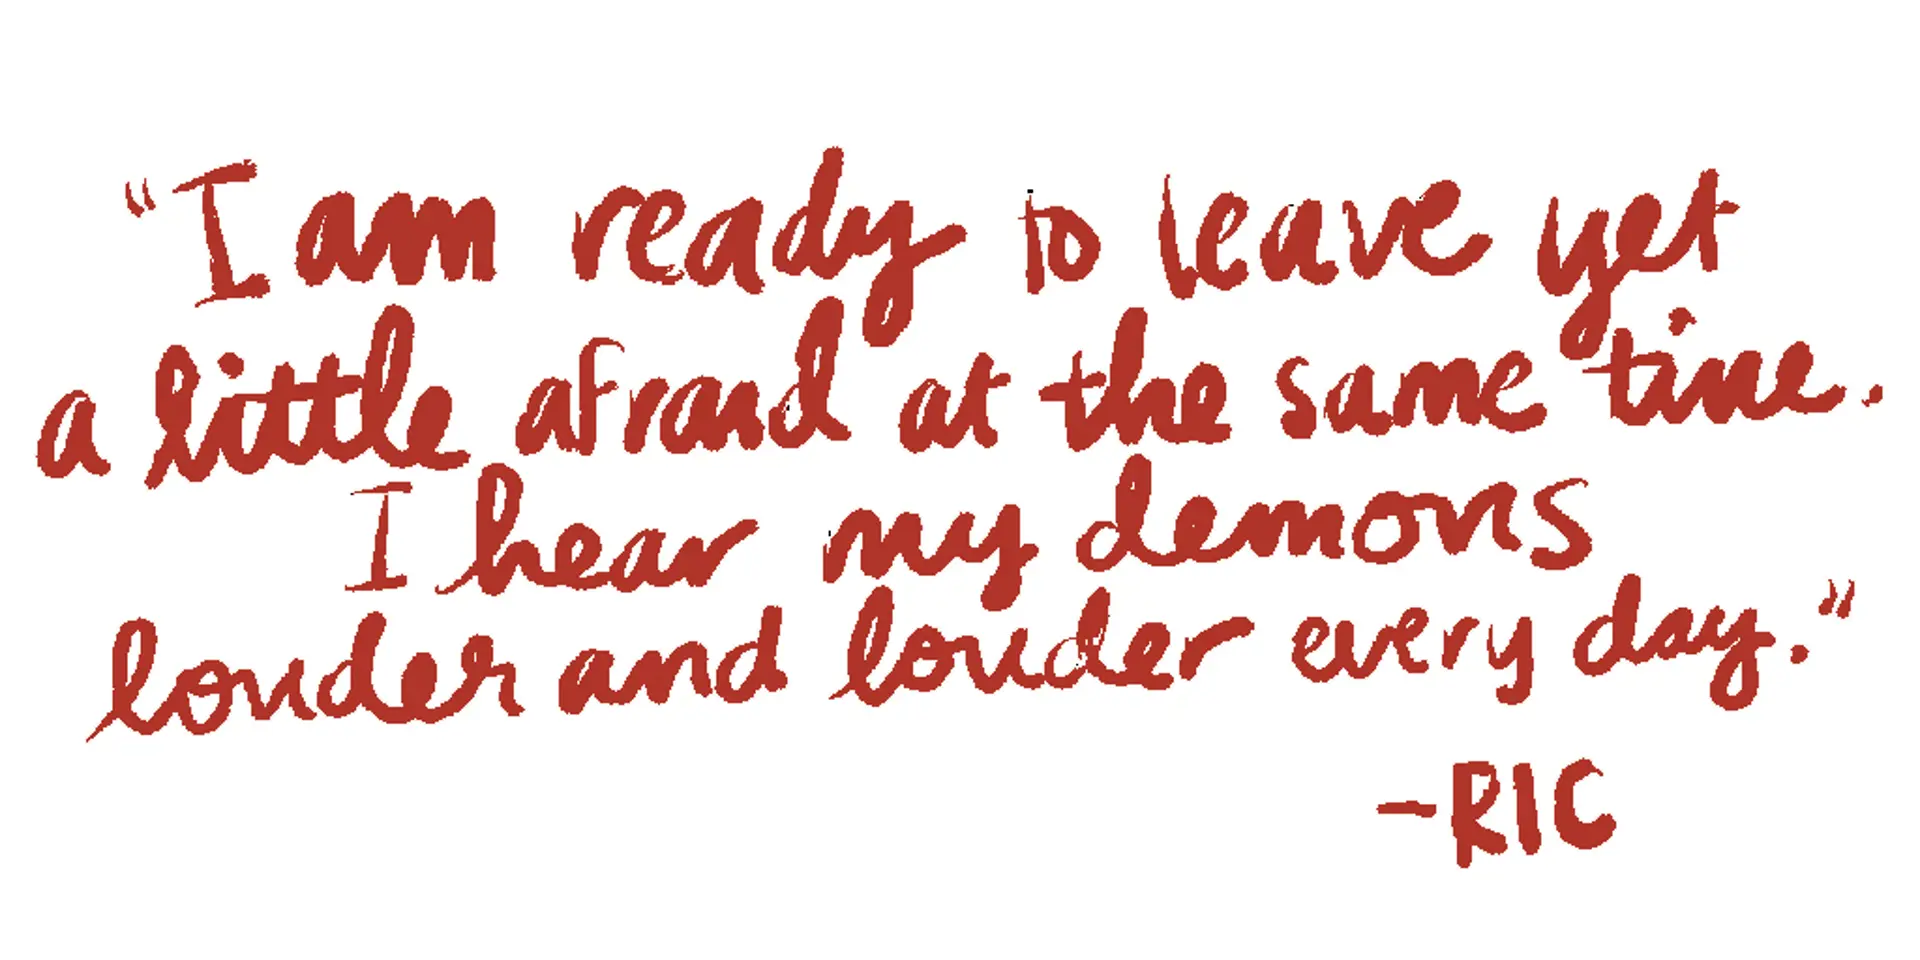 “I am ready to leave yet
a little afraid at the same time.
I hear my demons
louder and louder every day.”
-RIC